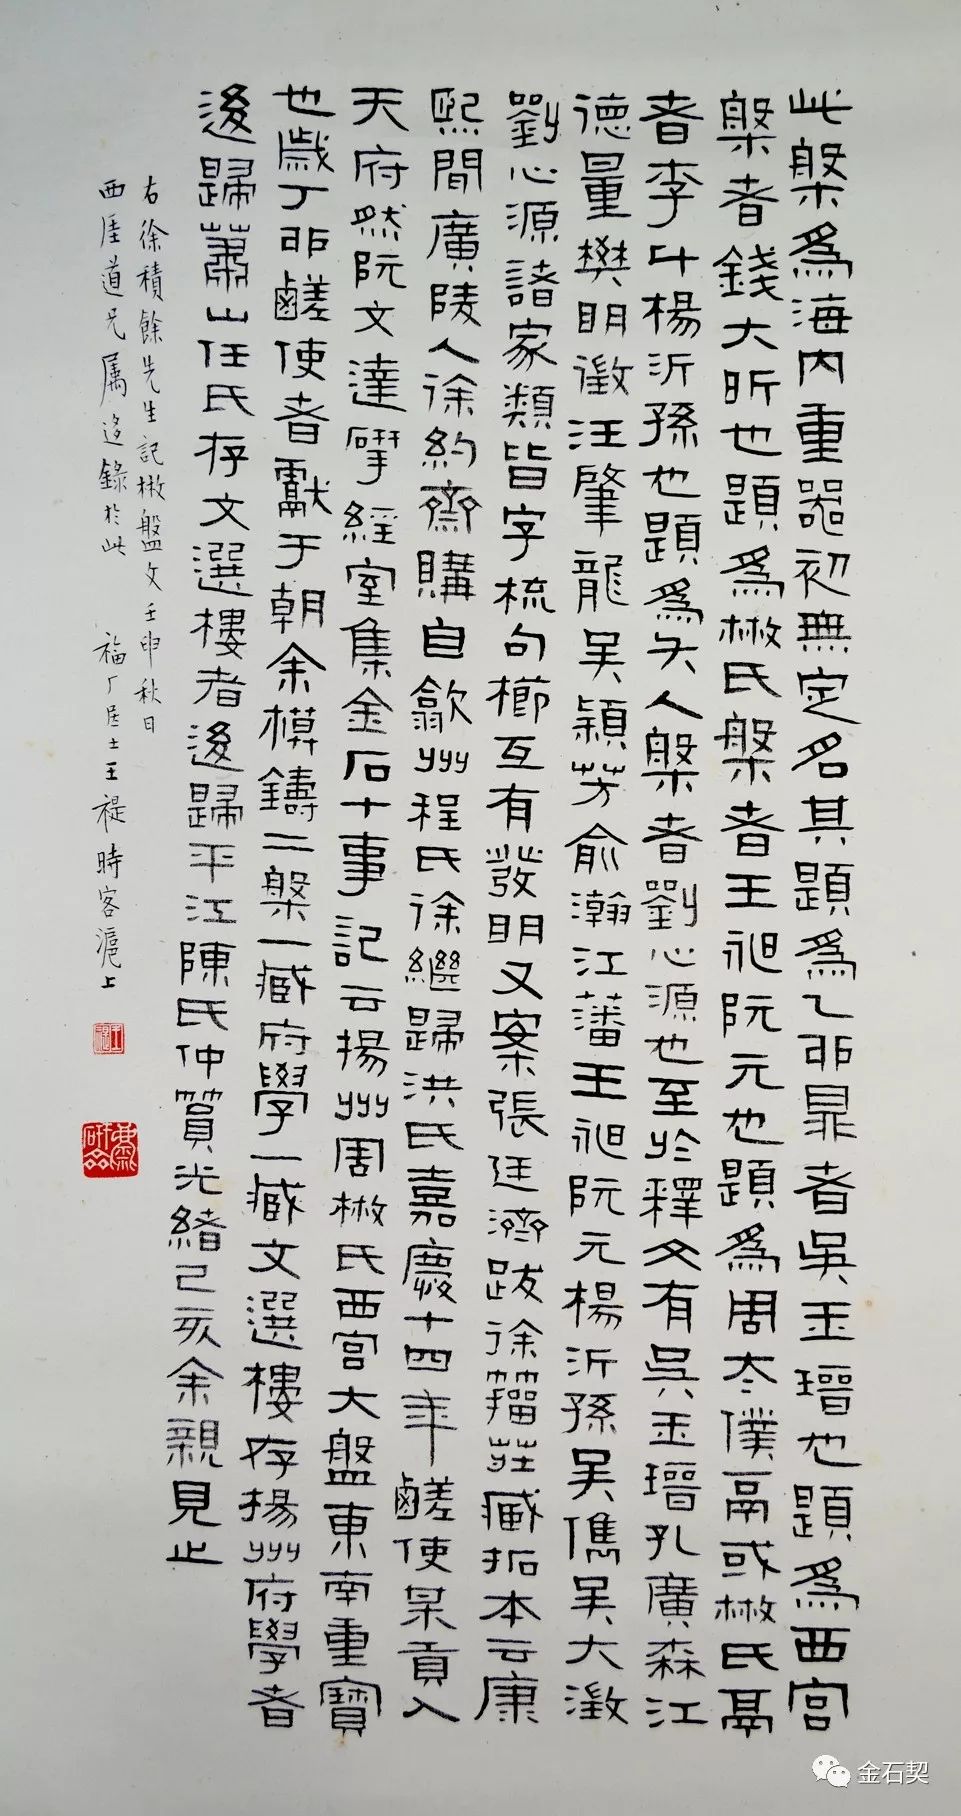 此槃爲海内重器初無定名其題爲乙卯鼎者吳玉搢也題爲西宫
槃者錢大昕也題爲楙氏槃者王昶阮元也題爲周太僕鬲或楙氏鬲
者李斗楊沂孫也題爲夨人槃者劉心源也至於釋文有吳玉搢孔廣森江
德量樊明徵汪肇龍吴潁芳俞瀚江藩王昶阮元楊沂孫吴儁吴大澂
劉心源諸家類皆字梳句櫛互有發明又案張廷濟跋徐籀莊臧拓本云康
熙間廣陵人徐約齋購自歙州程氏徐繼歸洪氏嘉慶十四年鹺使某貢入
天府然阮文達揅經室集金石十事記云揚州周楙氏西宫大盤東南重寶
也歲丁卯鹺使者獻于朝余模鑄二槃一臧府學一臧文選樓存楊州府學者
後歸蕭山任氏存文選樓者後歸平江陳氏仲篔光緒己亥余親見止
右徐積餘先生記楙盤文壬申秋日
西厓道兄属迻錄於此 福厂居士王禔時客滬上
金石契